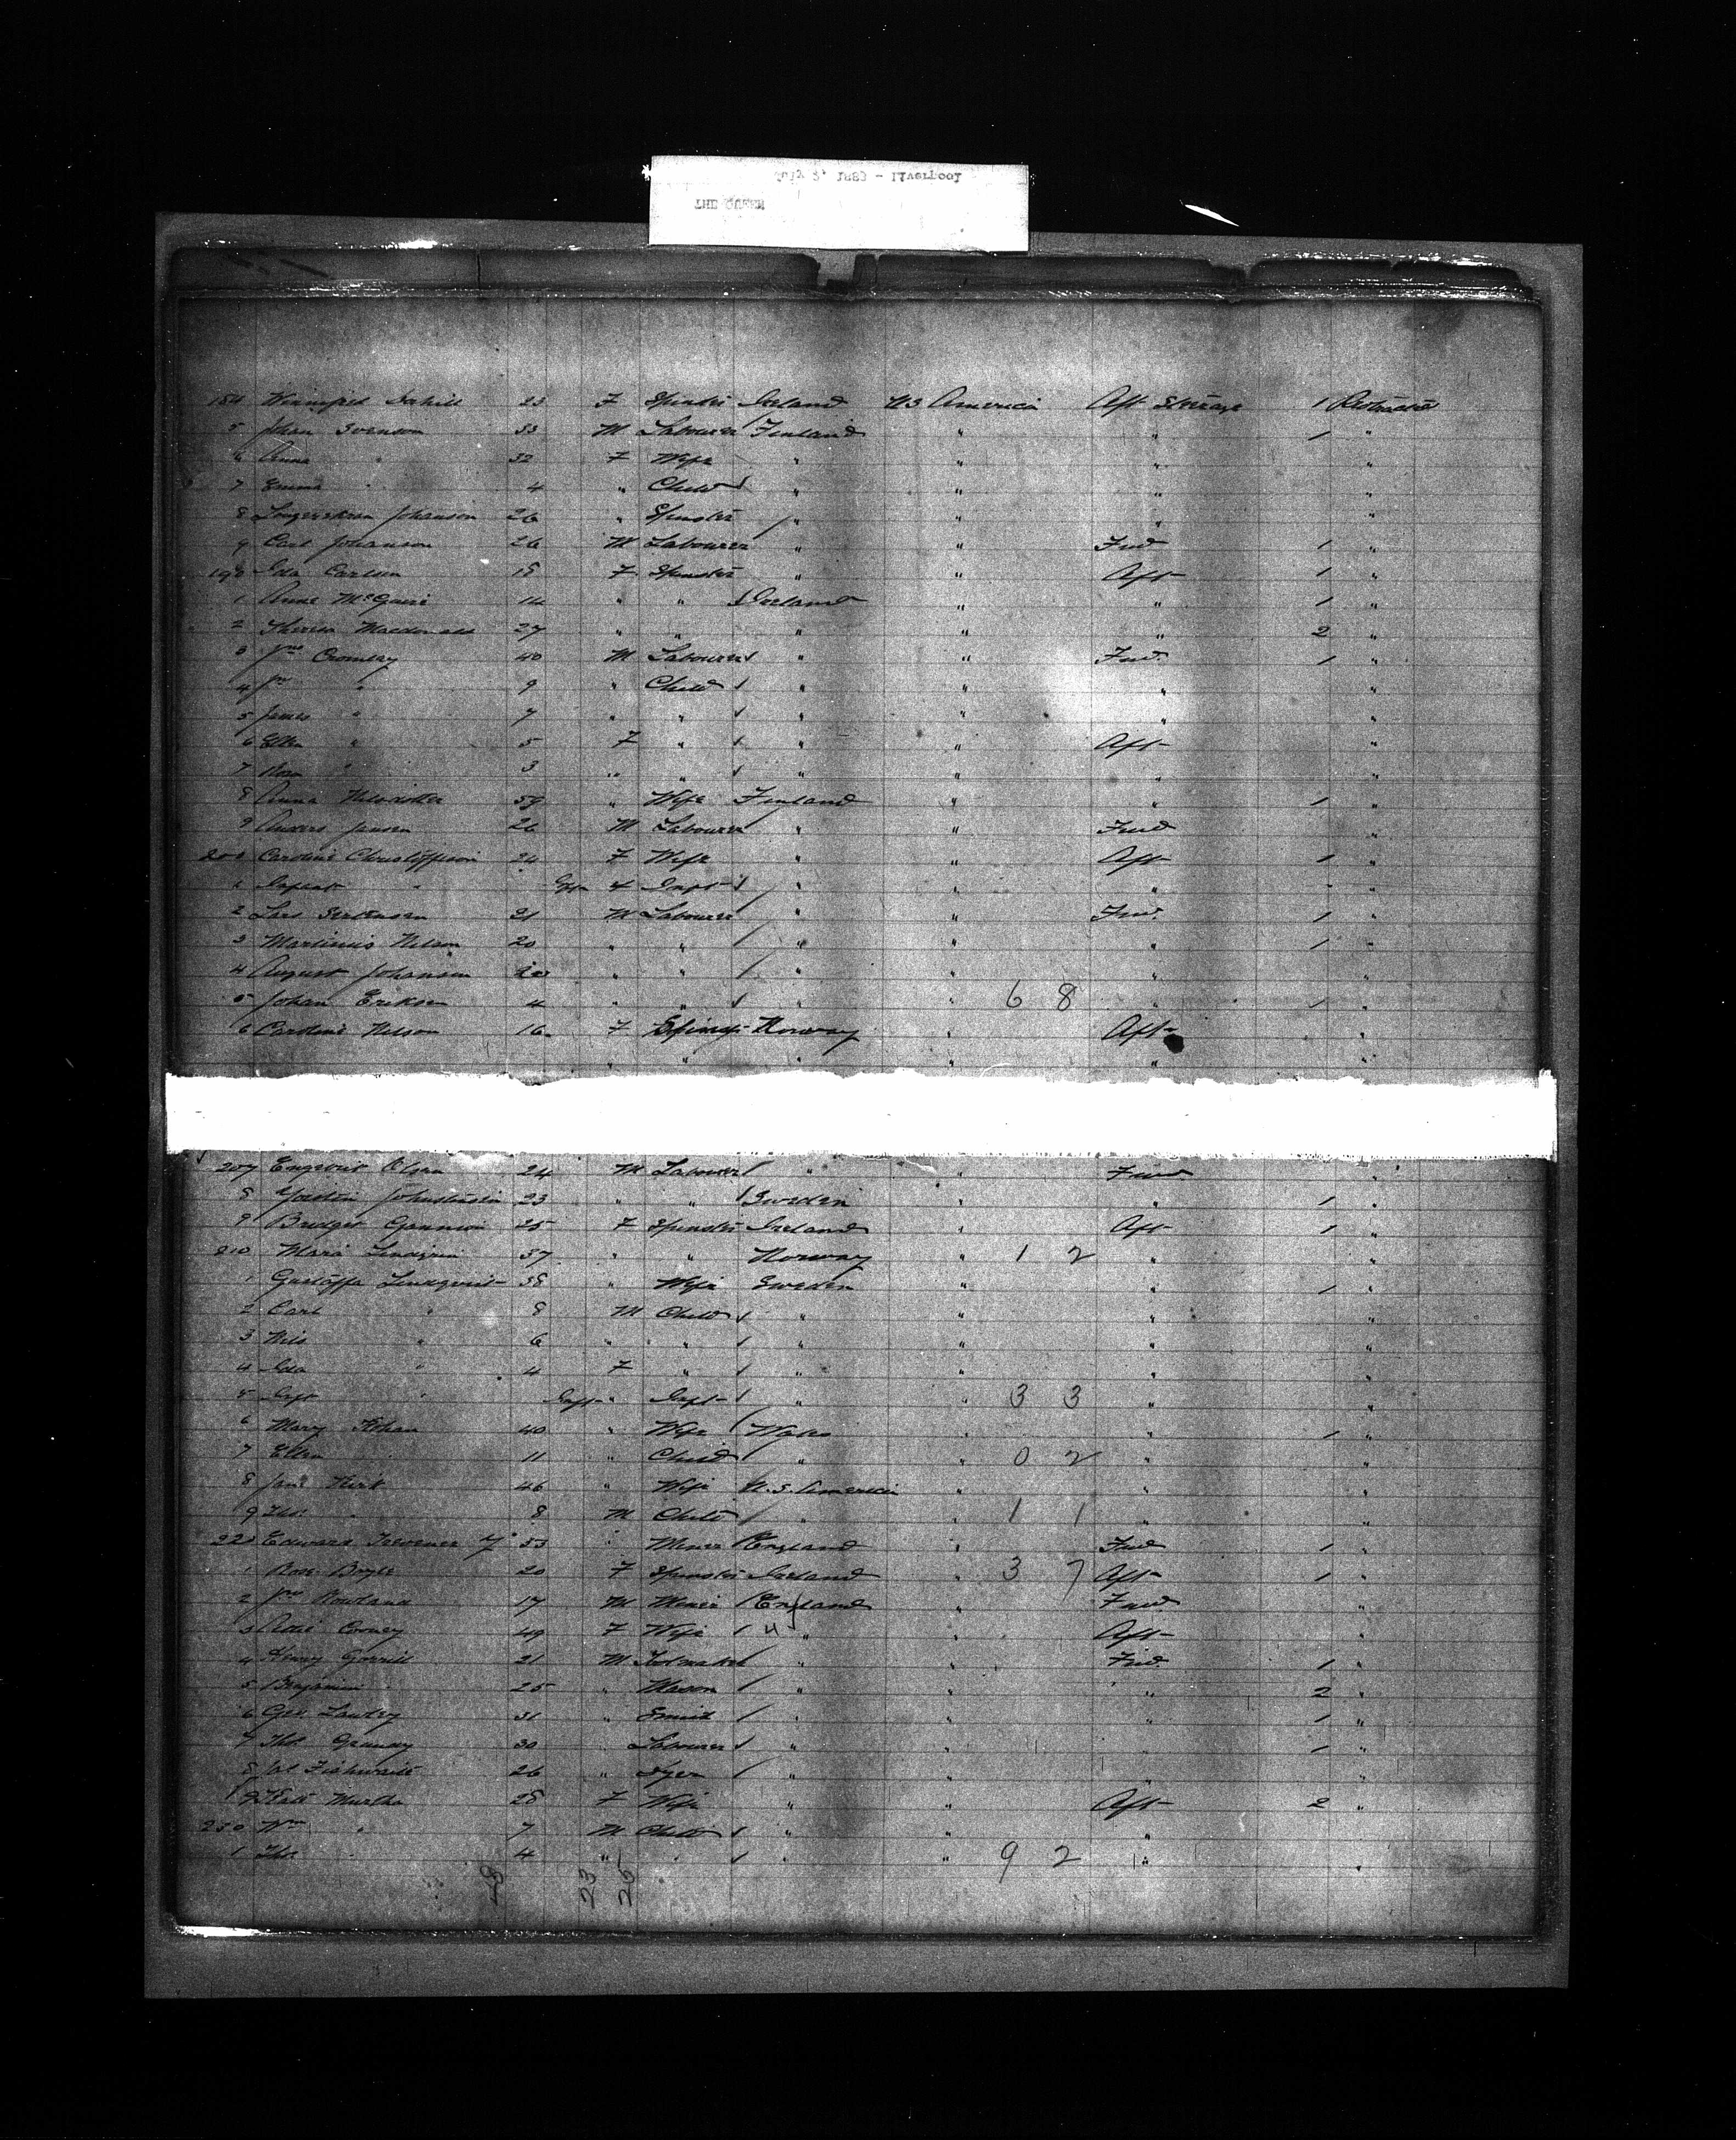 THE QUEEN
July 2, 1883 - Liverpool
184 Winnifred Cahill 23 F Spinster Ireland U S America Aft Steerage 1
5 Johan Svenson 33 M Labourer Finland " " 1 "
6 Anna " 32 F Wife " " " "
7 Emma " 4 " Child " " " "
8 Johanson 26 " Spinster " " " "
9 Carl Johanson 26 M Labourer " " Fwd 1 "
190 Ida Carlson 18 F Spinster " " Aft 1 "
1 Anne McGuire 14 " " Ireland " " 1 "
2 Theresa Macdonald 27 " " " " " 2 "
3 Jno Cromley 40 M Labourer " " Fwd. 1 "
4 Jno " 9 " Child " " " "
5 James " 7 " " " " " "
6 Ellen " 5 F " " " Aft "
7 Rosa " 3 " " " " " "
8 Anna 59 " Wife Finland " " 1 "
9 Anders Jansen 26 M Labourer " " Fwd "
200 Caroline Christoffson 24 F Wife " " Aft 1 "
1 Infant " Inft F Inft " " " "
2 Lars 21 M Labourer " " Fwd. 1 "
3 Martinus Nelson 20 " " " " " 1 "
4 August Johanson 20 " " " " " "
5 Johan Eriksen 4 " " " " 6 8 " 1 "
6 Caroline Nelson 16 F Spinst Norway " Aft "
" " " " " "
207 Engebrit Olsen 24 M Labourer " " Fwd "
8 23 " " Sweden " " 1 "
9 Bridget Gannon 25 F Spinster Ireland " Aft 1 "
210 Maria 57 " " Norway " 1 2 " "
1 Gustaffa Lindqvist 38 " Wife Sweden " " 1 "
2 Carl " 8 M Child " " " "
3 Nils " 6 " " " " " "
4 Ida " 4 F " " " " "
5 Inft " Inft " Inft " " 3 3 " "
6 Mary 40 " Wife Wales " " 1 "
7 Ellen " 11 " Child " " 0 2 " "
8 Jane Kirk 46 " Wife U.S. America " " "
9 Thos " 8 M Child " " 1 1 " "
220 Edward 53 " Miner England " Fwd 1 "
1 Rose Boyle 20 F Spinster Ireland " 3 7 Aft 1 "
2 Jno Rowland 17 M Miner England " Fwd "
3 Corney 49 F Wife 4 " " Aft "
4 Henry Gorrill 21 M Toolmaker " " Fwd. 1 "
5 Benjamin " 25 " Mason " " " 2 "
6 Geo Lawley 31 " Smith " " " 1 "
7 Thos Grundy 30 Labourer " " " 1 "
8 Fishwaite 26 " Dyer " " " "
9 Kate Murtha 28 F Wife " " Aft 2 "
230 Wm " 7 M Child " " " "
1 Thos " 4 " " " " 9 2 " "
48 23 25